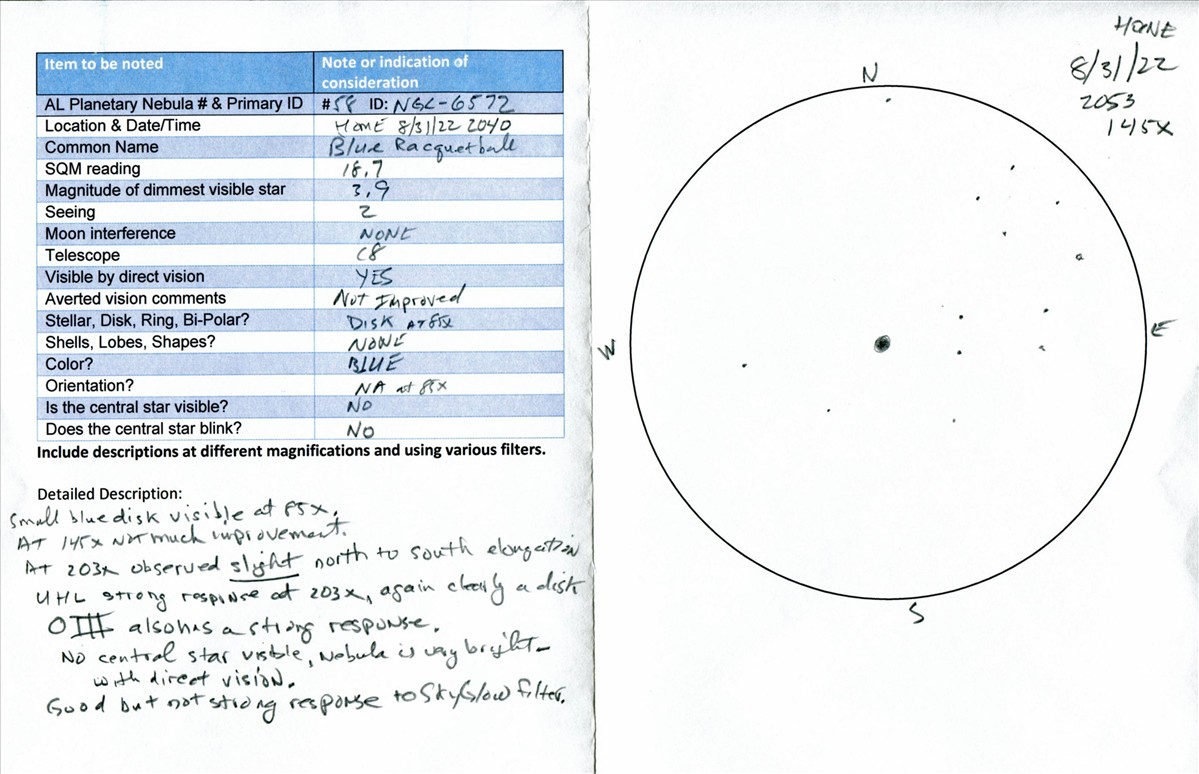 Item to be noted Note or indication of consideration
AL Planetary Nebula # & Primary ID #58 ID: NGC-6572
Location & Date/Time HOME 8/31/22 2040
Common Name Blue Racquetball
SQM reading 18.7
Magnitude of dimmest visible star 3.9
Seeing 2
Moon interference NONE
Telescope C8
Visible by direct vision YES
Averted vision comments Not Improved
Stellar, Disk, Ring, Bi-Polar? DISK AT 85x
Shells, Lobes, Shapes? NONE
Color? BLUE
Orientation? NA at 85x
Is the central star visible? NO
Does the central star blink? NO
Include descriptions at different magnifications and using various filters.
Detailed Description:
Small blue disk visible at 85x.
AT 145x not much improvement.
At 203x observed slight north to south elongation
UHC strong response at 203x, again clearly a disk
OIII also has a strong response.
No central star visible, Nebula is very bright
with direct vision.
Good but not strong response to SkyGlow filter.
HOME
8/31/22
2053
145x
N
W
E
S